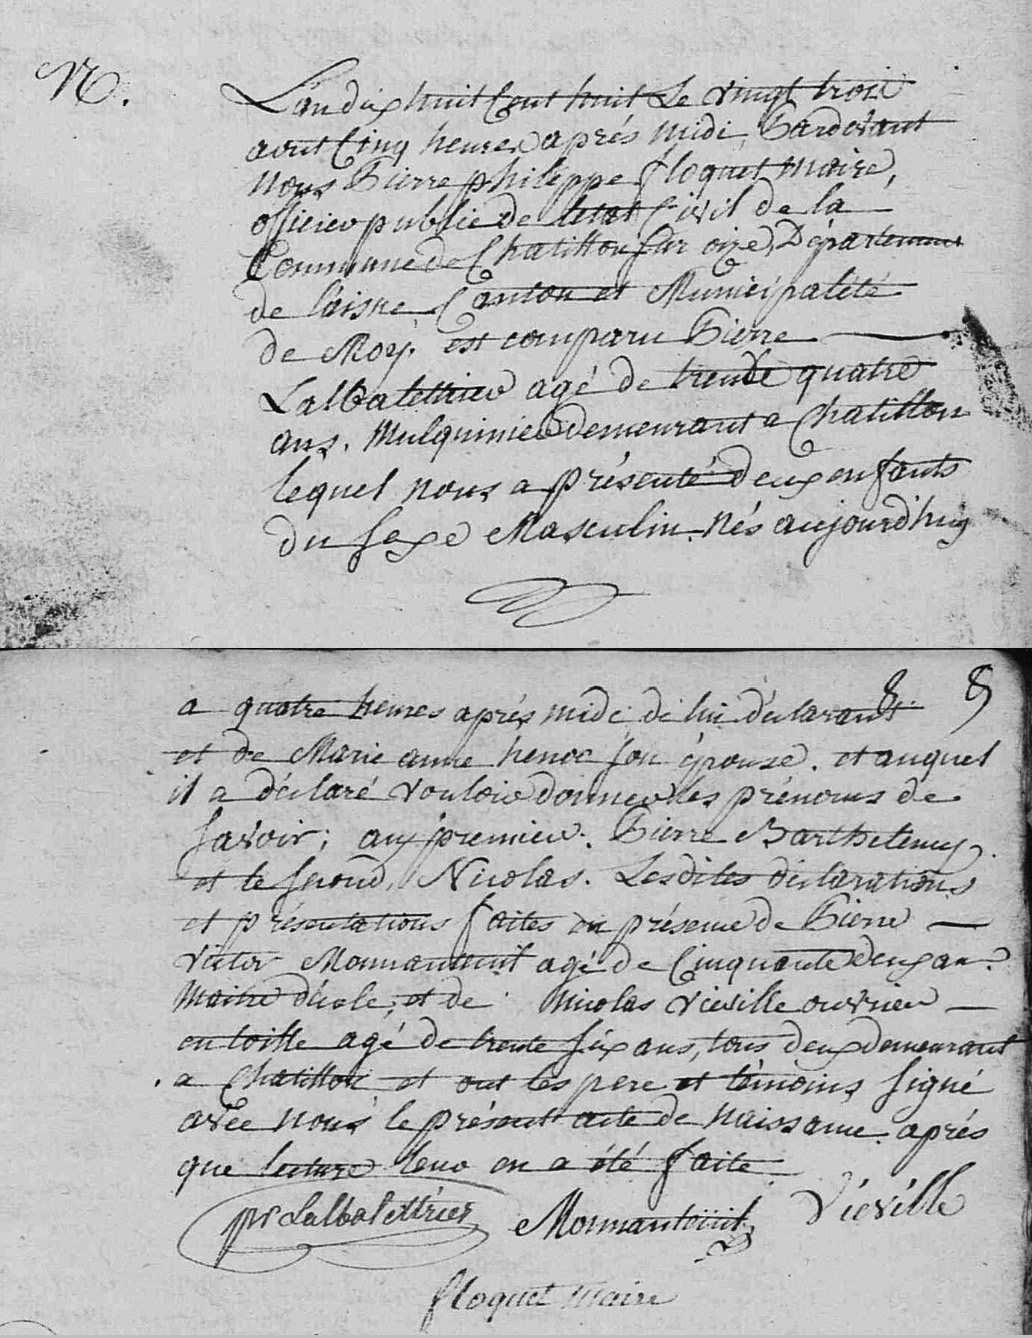 N.
L'an dix huit Cent huit Le vingt trois
aout Cinq heures après midi, Pardevant
nous Pierre philippe floquet maire,
officier public de letat Civil de la
Commune de Chatillon sur oize, Département
de l'aisne Canton et Municipalité
de Moÿ. est comparu Pierre
Lalbalettrier agé de trente quatre
ans. Mulquinier demeurant a Chatillon
lequel nous a présenté deux enfants
du sexe Masculin. Nés aujourd'huy
8. 8
a quatre heures après midi de lui déclarant
et de Marie anne henoc son épouse. et auquel
il a déclaré vouloir donner les prénoms de
savoir; aux premier. Pierre Barthelemy.
et le second, Nicolas. Lesdites déclarations
et présentations faites en présence de Pierre
Victor Monnanteuil agé de Cinquante deux an.
Maitre d'école, et de Nicolas vieville ouvrier
en toille agé de trente six ans, tous deux demeurant
a Chatillon et ont les pere et témoins signé
avec nous le présent acte de naissance. après
que lecture leur en a été faite.
pr Lalbalettrier Monnanteuil Viéville
floquet maire